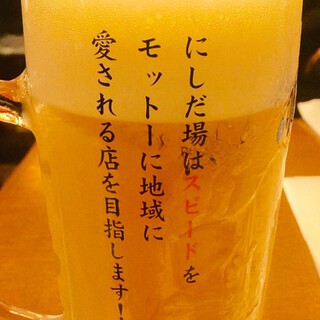 にしだ場はスピードを
モットーに地域に
愛される店を目指します!!